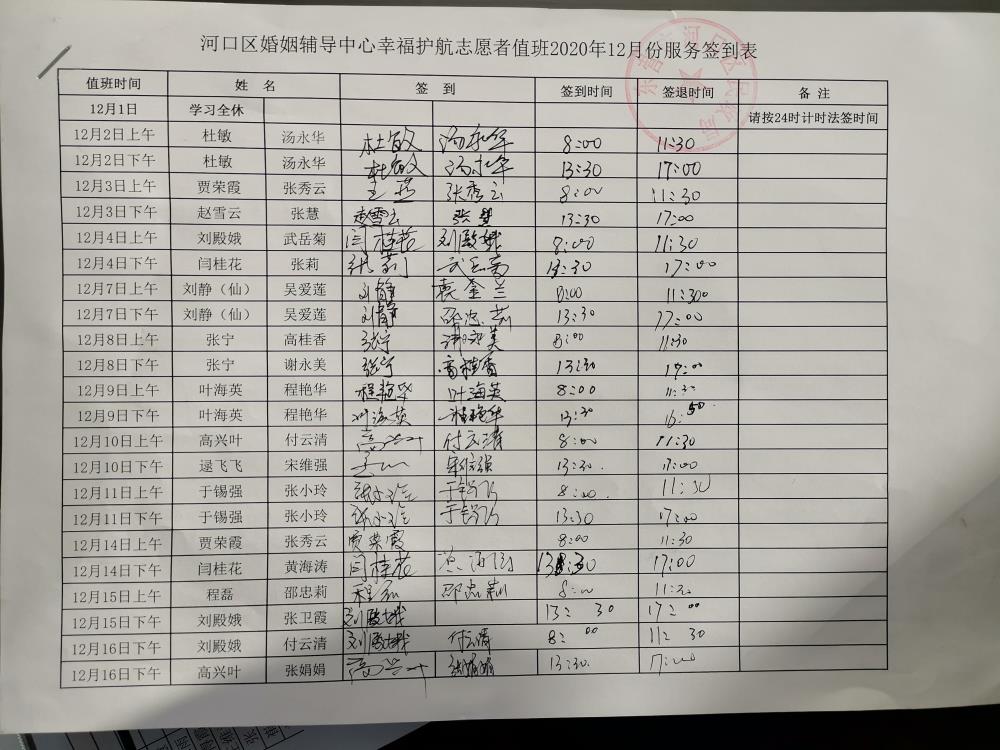 河口区婚姻辅导中心幸福护航志愿者值班2020年12月份服务签到表
值班时间 姓 名 签 到 签到时间 签退时间 备 注
12月1日 学习全休 请按24时计时法签时间
12月2日上午 杜敏 汤永华 杜敏 汤永华 8:00 11:30
12月2日下午 杜敏 汤永华 杜敏 汤永华 13:30 17:00
12月3日上午 贾荣霞 张秀云 王燕 张秀云 8:00 11:30
12月3日下午 赵雪云 张慧 赵雪云 张慧 13:30 17:00
12月4日上午 刘殿娥 武岳菊 闫桂花 刘殿娥 8:00 11:30
12月4日下午 闫桂花 张莉 张莉 武岳菊 13:30 17:00
12月7日上午 刘静（仙） 吴爱莲 刘静 袁金兰 8:00 11:30
12月7日下午 刘静（仙） 吴爱莲 刘静 邵忠莉 13:30 17:00
12月8日上午 张宁 高桂香 张宁 谢永美 8:00 11:30
12月8日下午 张宁 谢永美 张宁 高桂香 13:30 17:00
12月9日上午 叶海英 程艳华 程艳华 叶海英 8:00 11:30
12月9日下午 叶海英 程艳华 叶海英 程艳华 13:30 16:50
12月10日上午 高兴叶 付云清 高兴叶 付云清 8:00 11:30
12月10日下午 逯飞飞 宋维强 宋维强 13:30. 17:00
12月11日上午 于锡强 张小玲 张小玲 8:00. 11:30
12月11日下午 于锡强 张小玲 张小玲 13:30 17:00
12月14日上午 贾荣霞 张秀云 贾荣霞 8:00 11:30
12月14日下午 闫桂花 黄海涛 闫桂花 13:30 17:00
12月15日上午 程磊 邵忠莉 程磊 邵忠莉 8:00 11:30
12月15日下午 刘殿娥 张卫霞 刘殿娥 13:30 17:00
12月16日下午 刘殿娥 付云清 刘殿娥 付云清 8:00 11:30
12月16日下午 高兴叶 张娟娟 高兴叶 张娟娟 13:30. 17:00